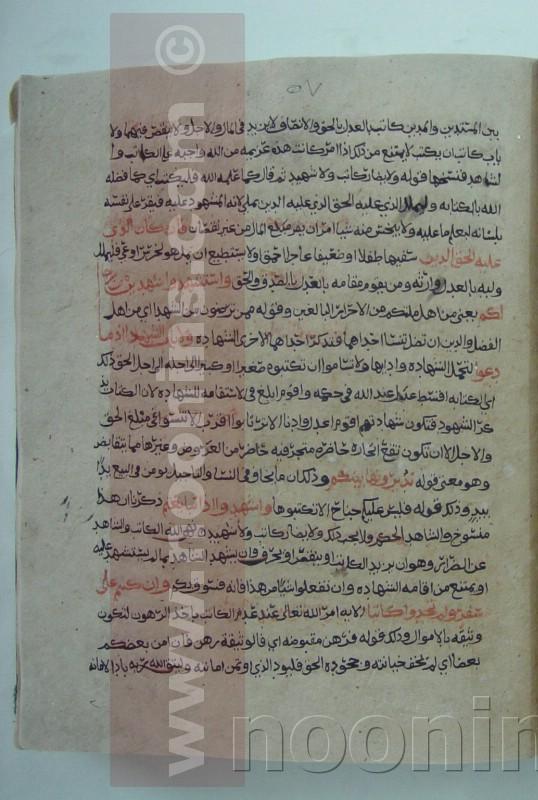 ٥٧
بين المستدين والمدين كاتب بالعدل بالحق والانصاف ولا يزيد في المال والاجل ولا ينقص فيهما ولا
ياب كاتب ان يكتب لا يمتنع من ذلك اذا امر كانت هذه عزيمه من الله واجبه على الكاتب وا
لشاهد فنسخها قوله ولا يضار كاتب ولا شهيد ثم قال كما علمه الله فليكتب اي كما فضله
الله بالكتابه وليملل الذي عليه الحق الذي عليه الدين يملي لانه المشهود عليه فيقر على نفسه
بلسانه ليعلم ما عليه ولا يبخس منه شيا امر ان يقر بمبلغ المال من غير نقصان فان كان الذي
عليه الحق الدين سفيها طفلا او ضعيفا عاجزا احمق ولا يستطيع ان يمل هو لخرس او عي فليملل
وليه بالعدل وارثه ومن يقوم مقامه بالعدل بالصدق والحق واستشهدوا شهيدين من رجا
لكم يعني من اهل ملتكم من الاحرار البالغين وقوله ممن ترضون من الشهدا اي من اهل
الفضل والدين ان تضل تنسا احداهما فتذكر احداهما الاخرى الشهاده ولا ياب الشهدا اذا ما
دعوا لتحمل الشهاده واداها ولا تساموا ان تكتبوه صغيرا او كبيرا الى اجله الى اجل الحق ذلكم
اي الكتابه اقسط عند الله في حكمه واقوم ابلغ في الاستقامه للشهاده لان الكتاب يذ
كر الشهود فتكون شهادتهم اقوم اعدل وادنا الا ترتابوا اقرب الا تشكوا في مبلغ الحق
والاجل الا ان تكون تقع تجارة حاضرة متجر فيه حاضر من العروض وغيرها مما يتقابض
وهو معنى قوله تديرونها بينكم وذلك ان ما يخاف في النسا والتاجيل يومن في البيع يدا
بيد وذلك قوله فليس عليكم جناح الا تكتبوها واشهدوا اذا تبايعتم ذكرنا ان هذا
منسوخ والشاهد الحكم ولا يجب ذلك ولا يضار كاتب ولا شهيد نهى الله الكاتب والشاهد
عن الضرار وهو ان يزيد الكاتب او ينقص او يحرف وان يشهد الشاهد بما لم يستشهد عليه
او يمتنع من اقامه الشهاده وان تفعلوا شيا من هذا فانه فسوق بكم وان كنتم على
سفر ولم تجدوا كاتبا الايه امر الله تعالى عند عدم الكاتب باخذ الرهون لتكون
وثيقه بالاموال وذلك قوله فرهن مقبوضه اي فالوثيقة رهن فان امن بعضكم
بعضا اي لم يخف خيانته وجحوده الحق فليود الذي اوتمن امانته وليتق الله ربه باداء الامانه
www.noormags.com ©
noorin